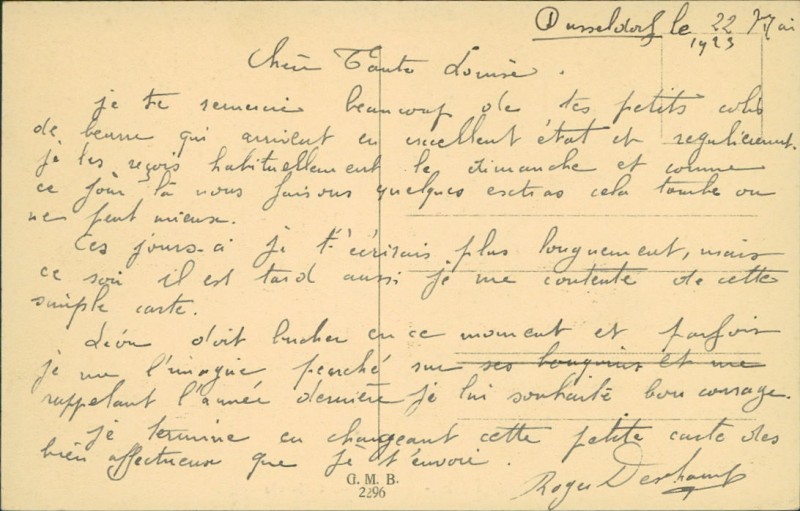 Dusseldorf le 22 Mai
1923
Chère Tante Louise.
je te remercie beaucoup de tes petits colis
de beurre qui arrivent en excellent état et regulierement.
je les reçois habituellement le dimanche et comme
ce jour là nous faisons quelques extras cela tombe on
ne peut mieux.
Ces jours-ci je t'écrirais plus longuement, mais
ce soir il est tard aussi je me contente de cette
simple carte.
Léon doit bucher en ce moment et parfois
je me l'imagine penché sur ses bouquins et me
rappelant l'année dernière je lui souhaite bon courage.
je termine en chargeant cette petite carte des
bien affectueux que je t'envoie.
Roger Deschamps
G. M. B.
2296